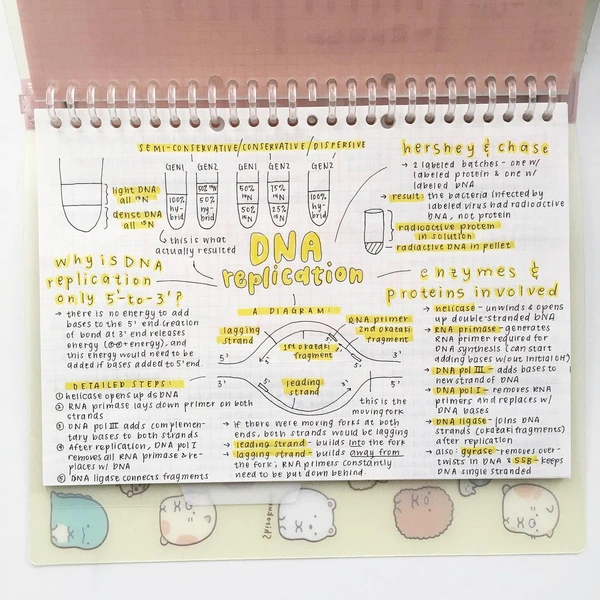 SEMI-CONSERVATIVE/CONSERVATIVE/DISPERSIVE
GEN1 GEN2 GEN1 GEN2 GEN2
light DNA
all ¹⁴N
dense DNA
all ¹⁵N
100% hybrid
50% ¹⁴N
50% hybrid
50% ¹⁴N
50% ¹⁵N
25% ¹⁵N
100% hybrid
this is what
actually resulted
hershey & chase
→ 2 labeled batches - one w/
labeled protein & one w/
labeled DNA
→ result: the bacteria infected by
labeled virus had radioactive
DNA, not protein
radioactive protein
in solution
radiactive DNA in pellet
DNA
replication
why is DNA
replication
only 5'-to-3'?
→ there is no energy to add
bases to the 5' end. creation
of bond at 3' end releases
energy (energy), and
this energy would need to be
added if bases added to 5' end.
DETAILED STEPS:
① helicase opens up dsDNA
② RNA primase lays down primer on both
strands
③ DNA pol III adds complemen-
tary bases to both strands
④ After replication, DNA pol I
removes all RNA primase & re-
places w/ DNA
⑤ DNA ligase connects fragments
A DIAGRAM:
lagging
strand
RNA primer
2nd okazaki
fragment
1st okazaki
fragment
5' 3'
3' 5'
leading
strand
this is the
moving fork
→ if there were moving forks at both
ends, both strands would be lagging
→ leading strand - builds into the fork
→ lagging strand - builds away from
the fork; RNA primers constantly
need to be put down behind.
enzymes &
proteins involved
→ helicase - unwinds & opens
up double-stranded DNA
→ RNA primase - generates
RNA primer required for
DNA synthesis (can start
adding bases w/out initial OH)
→ DNA pol III - adds bases to
new strand of DNA
→ DNA pol I - removes RNA
primers and replaces w/
DNA bases
→ DNA ligase - joins DNA
strands (okazaki fragments)
after replication
→ also: gyrase - removes over-
twists in DNA & SSB - keeps
DNA single stranded